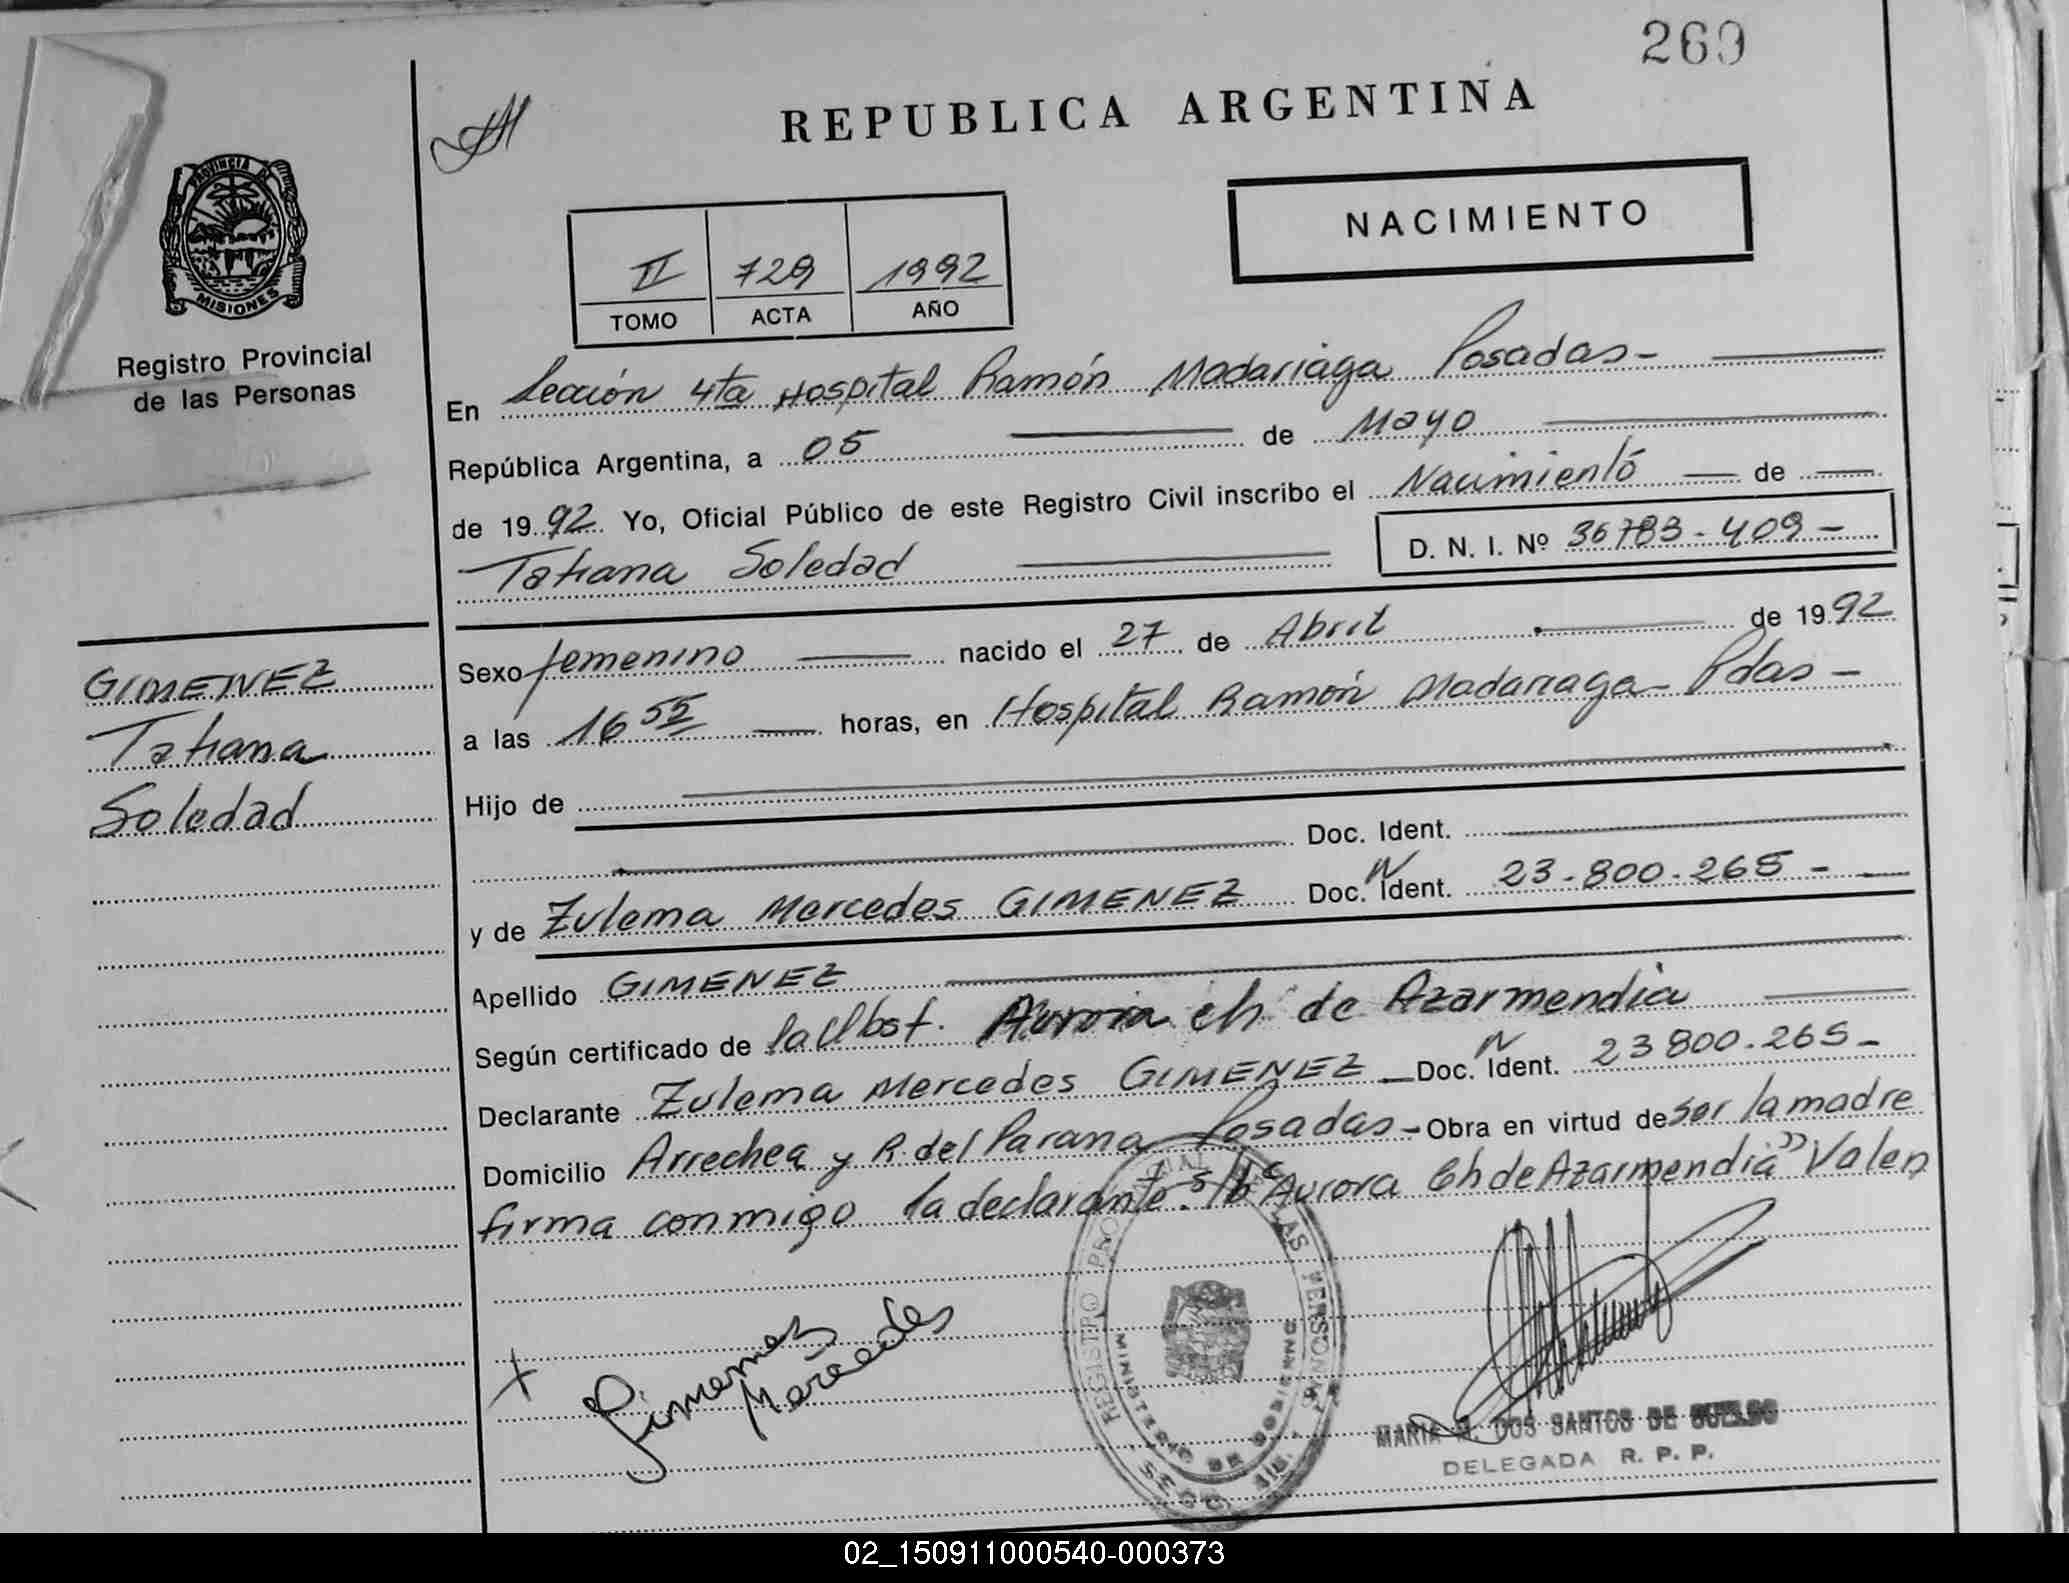 269
REPUBLICA ARGENTINA
NACIMIENTO
II 729 1992
TOMO ACTA AÑO
PROVINCIA DE
MISIONES
Registro Provincial
de las Personas
En Sección 4ta Hospital Ramón Madariaga Posadas-
República Argentina, a 05 de Mayo
de 1992 Yo, Oficial Público de este Registro Civil inscribo el Nacimientó de
Tatiana Soledad D. N. I. Nº 36783-409-
GIMENEZ
Tatiana
Soledad
Sexo femenino nacido el 27 de Abril de 1992
a las 16 55 horas, en Hospital Ramón Madariaga-Pdas-
Hijo de
Doc. Ident.
y de Zulema Mercedes GIMENEZ Doc. N Ident. 23-800-265-
Apellido GIMENEZ
Según certificado de la Obst. Aurora ch de Azarmendia
Declarante Zulema Mercedes GIMENEZ Doc. N Ident. 23800.265-
Domicilio Arrechea y R. del Parana Posadas- Obra en virtud de ser la madre
firma conmigo la declarante. s/b "Aurora Ch de Azarmendia" Valen
Gimenez
Mercedes
REGISTRO PROVINCIAL DE LAS PERSONAS
MINISTERIO DE GOBIERNO
MARIA M. DOS SANTOS DE
DELEGADA R. P. P.
02_150911000540-000373